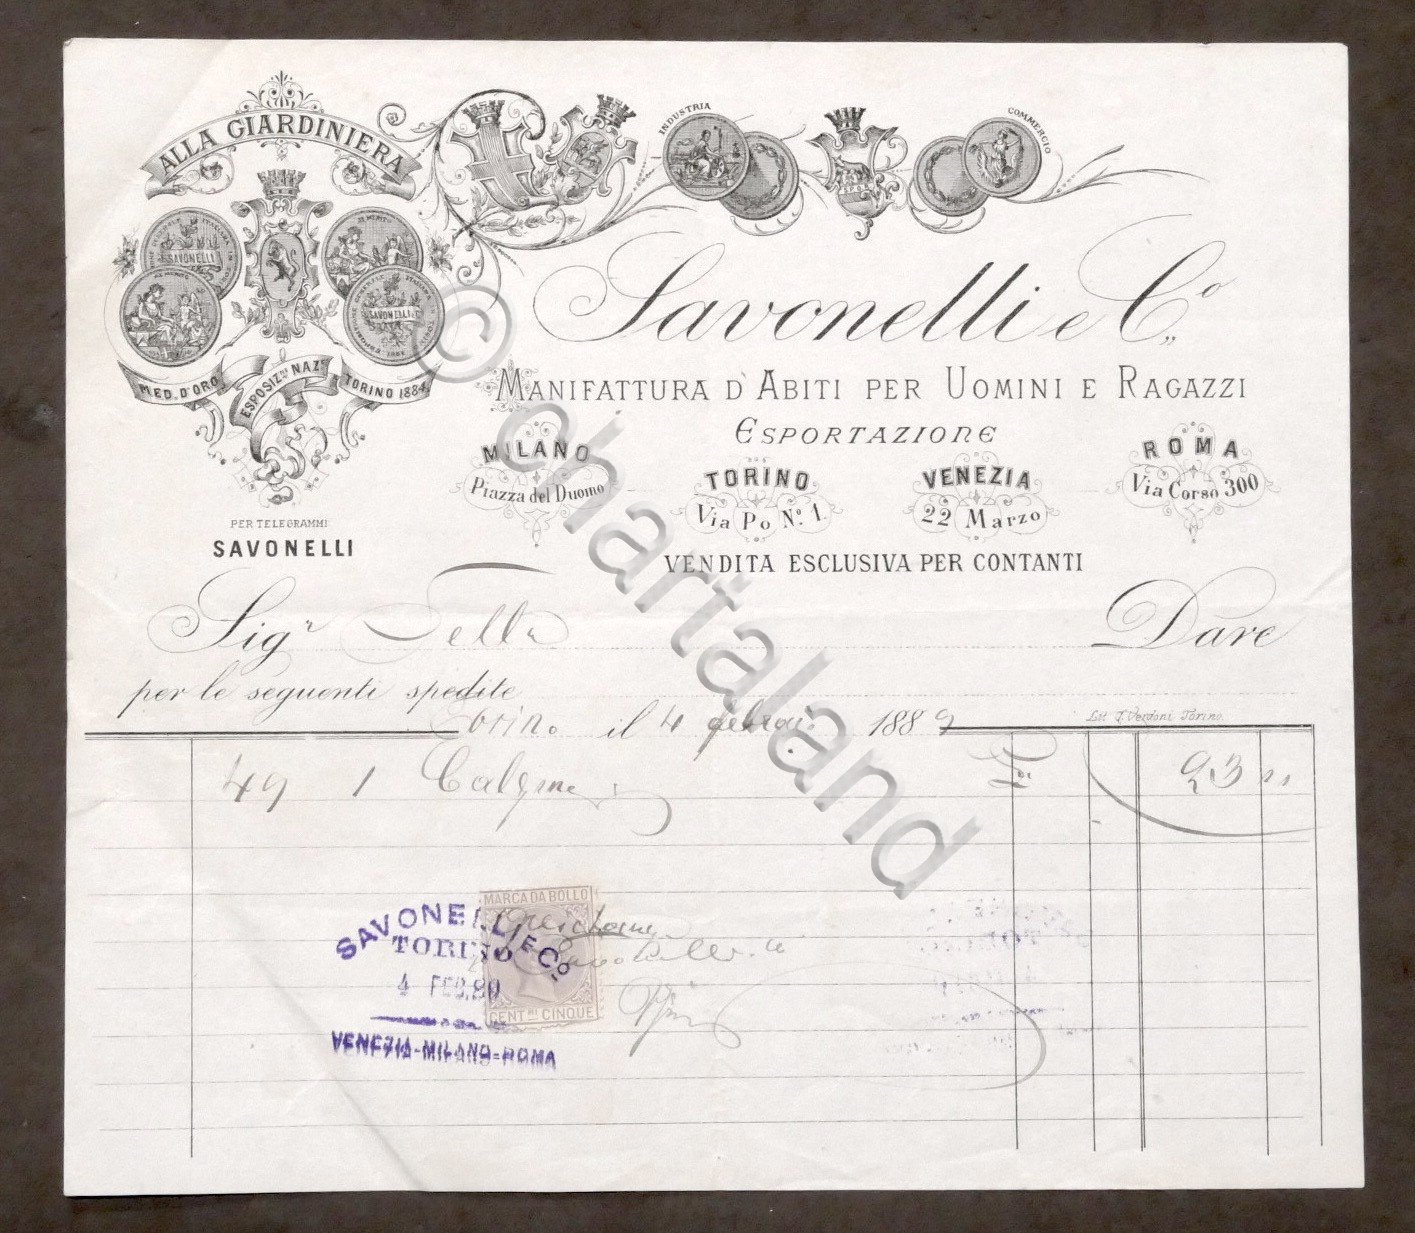 ALLA GIARDINIERA
INDUSTRIA
COMMERCIO
SAVONELLI
SAVONELLI
MED. D'ORO ESPOSIZ.NE NAZ.LE TORINO 1884
Savonelli e C.o
MANIFATTURA D'ABITI PER UOMINI E RAGAZZI
ESPORTAZIONE
MILANO
Piazza del Duomo
TORINO
Via Po N.o 1.
VENEZIA
22 Marzo
ROMA
Via Corso 300
PER TELEGRAMMI
SAVONELLI
VENDITA ESCLUSIVA PER CONTANTI
Sig.r Dare
per le seguenti spedite
Torino il 4 febbraio 1889
Lit. Verdoni Torino
49 1 23
MARCA DA BOLLO
SAVONELLI E C.o
TORINO
4 FEB. 89
CENT.MI CINQUE
VENEZIA-MILANO-ROMA
©chartaland